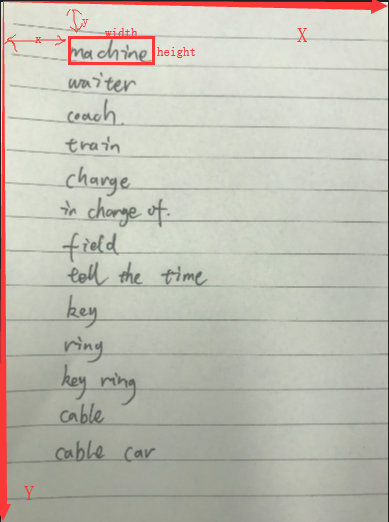 y
X
x
width
machine
height
waiter
coach.
train
charge
in charge of.
field
tell the time
key
ring
key ring
cable
cable car
Y